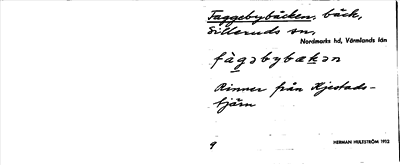 Faggebybäcken, bäck,
Silleruds sn,
Nordmarks hd, Värmlands län
fàgəbybækən
Rinner från Hjestads-
tjärn
9 HERMAN HULTSTRÖM 1932